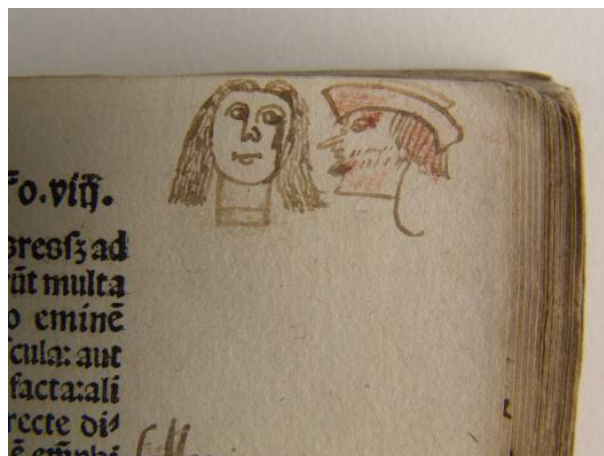 o.viij.
oreosꝫ ad
rūt multa
o eminē
ſcula: aut
facta:ali
recte di